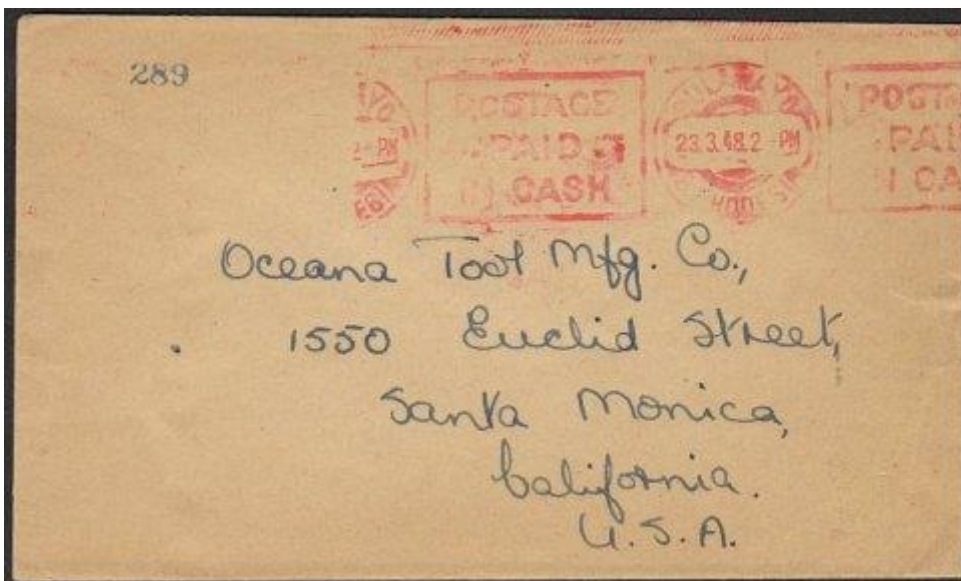 289
POSTAGE
PAID
IN CASH
2 PM
23.3.48.2 PM
POSTA
PAI
CA
Oceana Tool Mfg. Co.,
1550 Euclid Street,
Santa Monica,
California.
U.S.A.